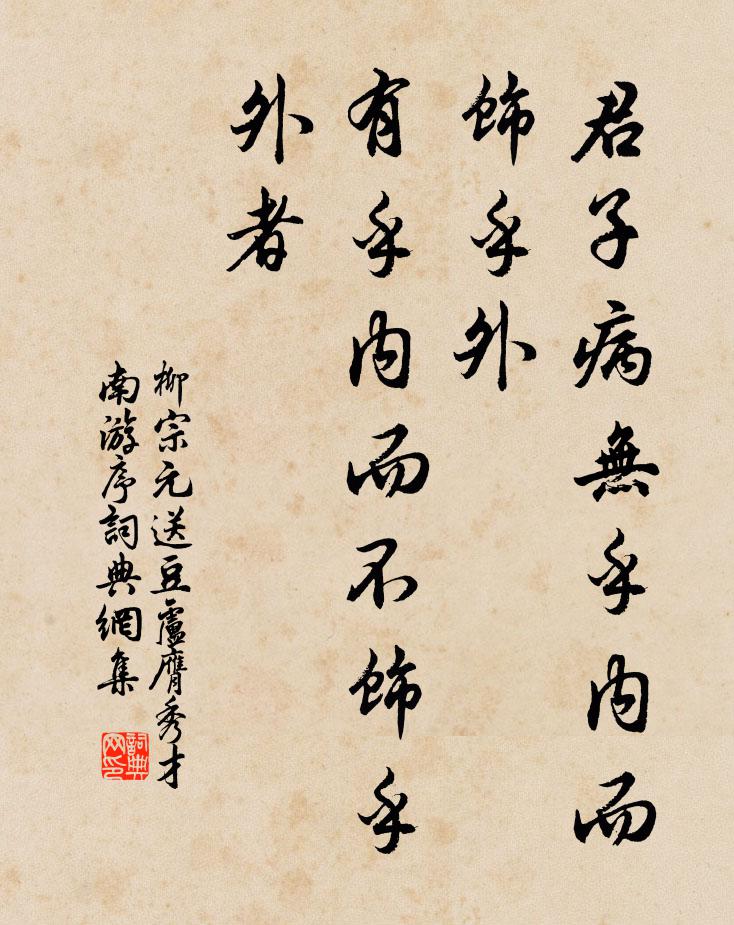 君子病無乎内而
飾乎外
有乎内而不飾乎
外者
柳宗元送豆盧膺秀才
南游序詞典網集
詞典
网印